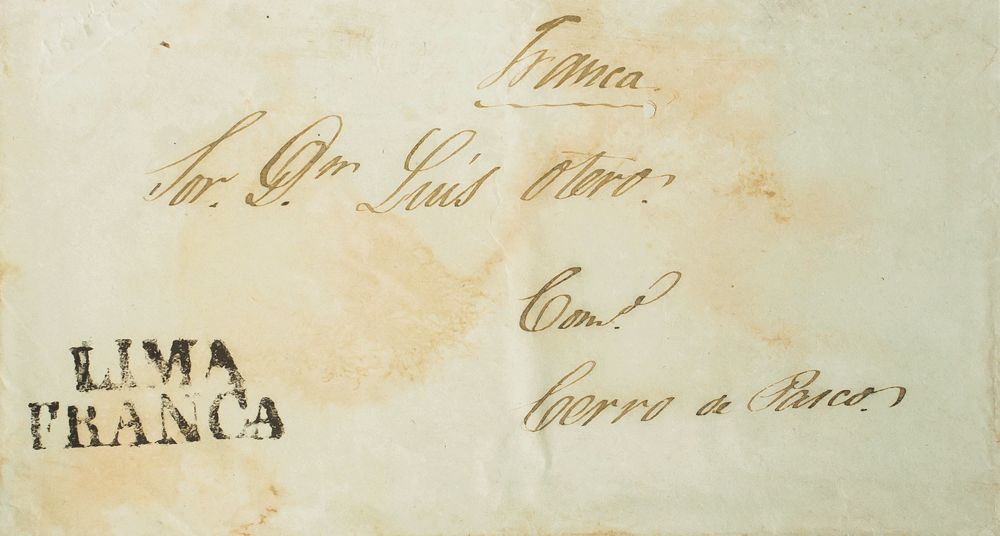 Franca
Sor. Dn Luis Otero.
Come.
Cerro de Pasco.
LIMA
FRANCA